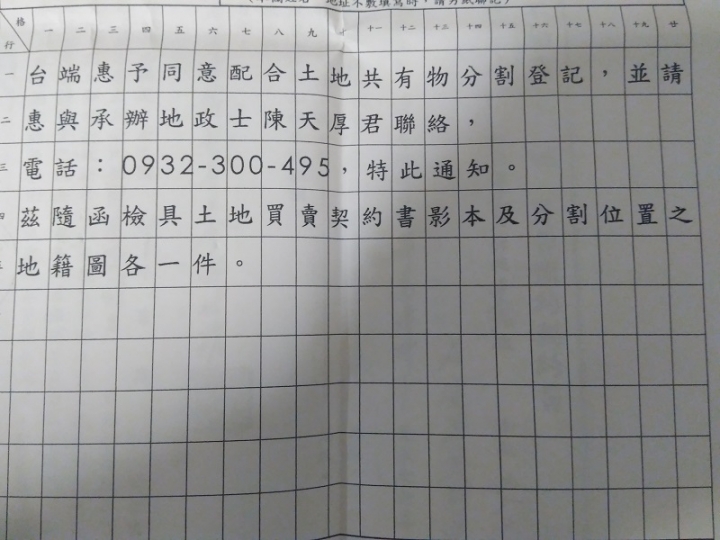 格 一 二 三 四 五 六 七 八 九 十 十一 十二 十三 十四 十五 十六 十七 十八 十九 廿
行
一 台端惠予同意配合土地共有物分割登記，並請
二 惠與承辦地政士陳天厚君聯絡，
三 電話：0932-300-495，特此通知。
四 茲隨函檢具土地買賣契約書影本及分割位置之
地籍圖各一件。